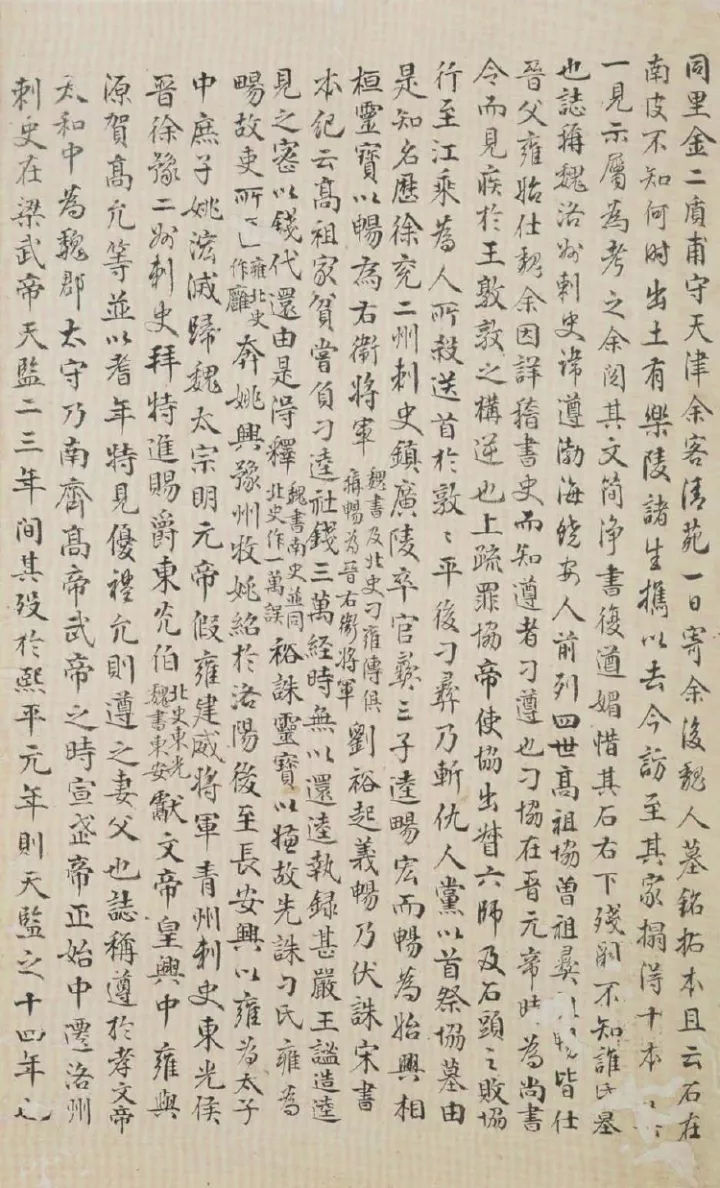 同里金二質甫守天津余客清苑一日寄余後魏人墓銘拓本且云石在
南皮不知何时出土有樂陵諸生攜以去今訪至其家搨得十本
一見示屬為考之余閱其文简淨書復遒媚惜其石右下殘闕不知誰氏墓
也誌稱魏洛州刺史諱遵渤海饒安人前列四世高祖協曽祖彝皆仕
晉父雍始仕魏余因詳稽書史而知遵者刁遵也刁協在晉元帝时為尚書
令而見疾於王敦敦之構逆也上疏罪協帝使協出督六師及石頭之敗協
行至江乘為人所殺送首於敦〻平後刁彝乃斬仇人黨以首祭協墓由
是知名歷徐兗二州刺史鎮廣陵卒官彝三子逵暢宏而暢為始興相
桓靈寶以暢為右衛將軍魏書及北史刁雍傳俱稱暢為晉右衛將軍劉裕起義暢乃伏誅宋書
本紀云髙祖家貧嘗負刁逵社錢三萬经時無以還逵執録甚嚴王謐造逵
見之密以钱代還由是得釋魏書南史並同北史作一萬誤裕誅靈寶以嫌故先誅刁氏雍為
暢故吏所匿雍北史作廱奔姚興豫州牧姚紹於洛陽後至長安興以雍為太子
中庶子姚泓滅歸魏太宗明元帝假雍建威将軍青州刺史東光侯
晉徐豫二州刺史拜特進賜爵東光伯北史東光魏書東安獻文帝皇興中雍與
源賀髙允等並以耆年特見優禮允則遵之妻父也誌稱遵於孝文帝
太和中為魏郡太守乃南齊髙帝武帝之時宣武帝正始中遷洛州
刺史在梁武帝天監二三年间其殁於熙平元年則天監之十四年也